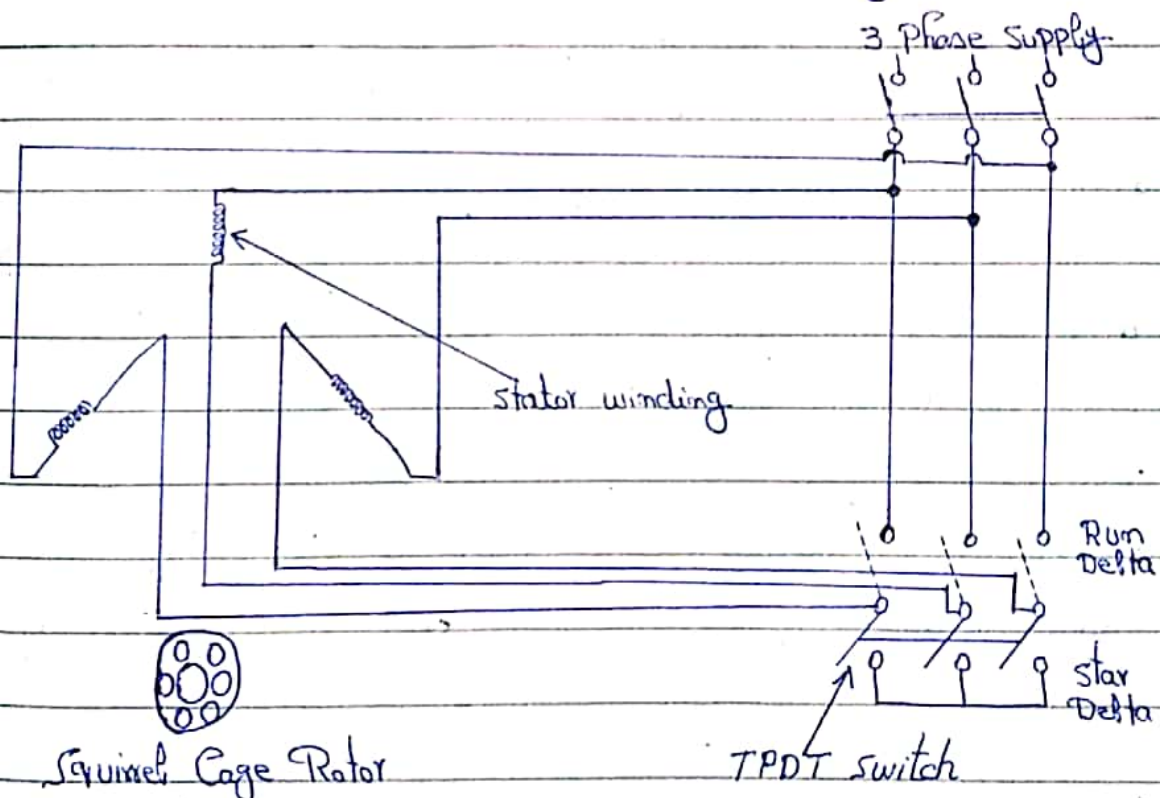 3 Phase Supply
stator winding
Run
Delta
Star
Delta
Squirrel Cage Rotor
TPDT Switch